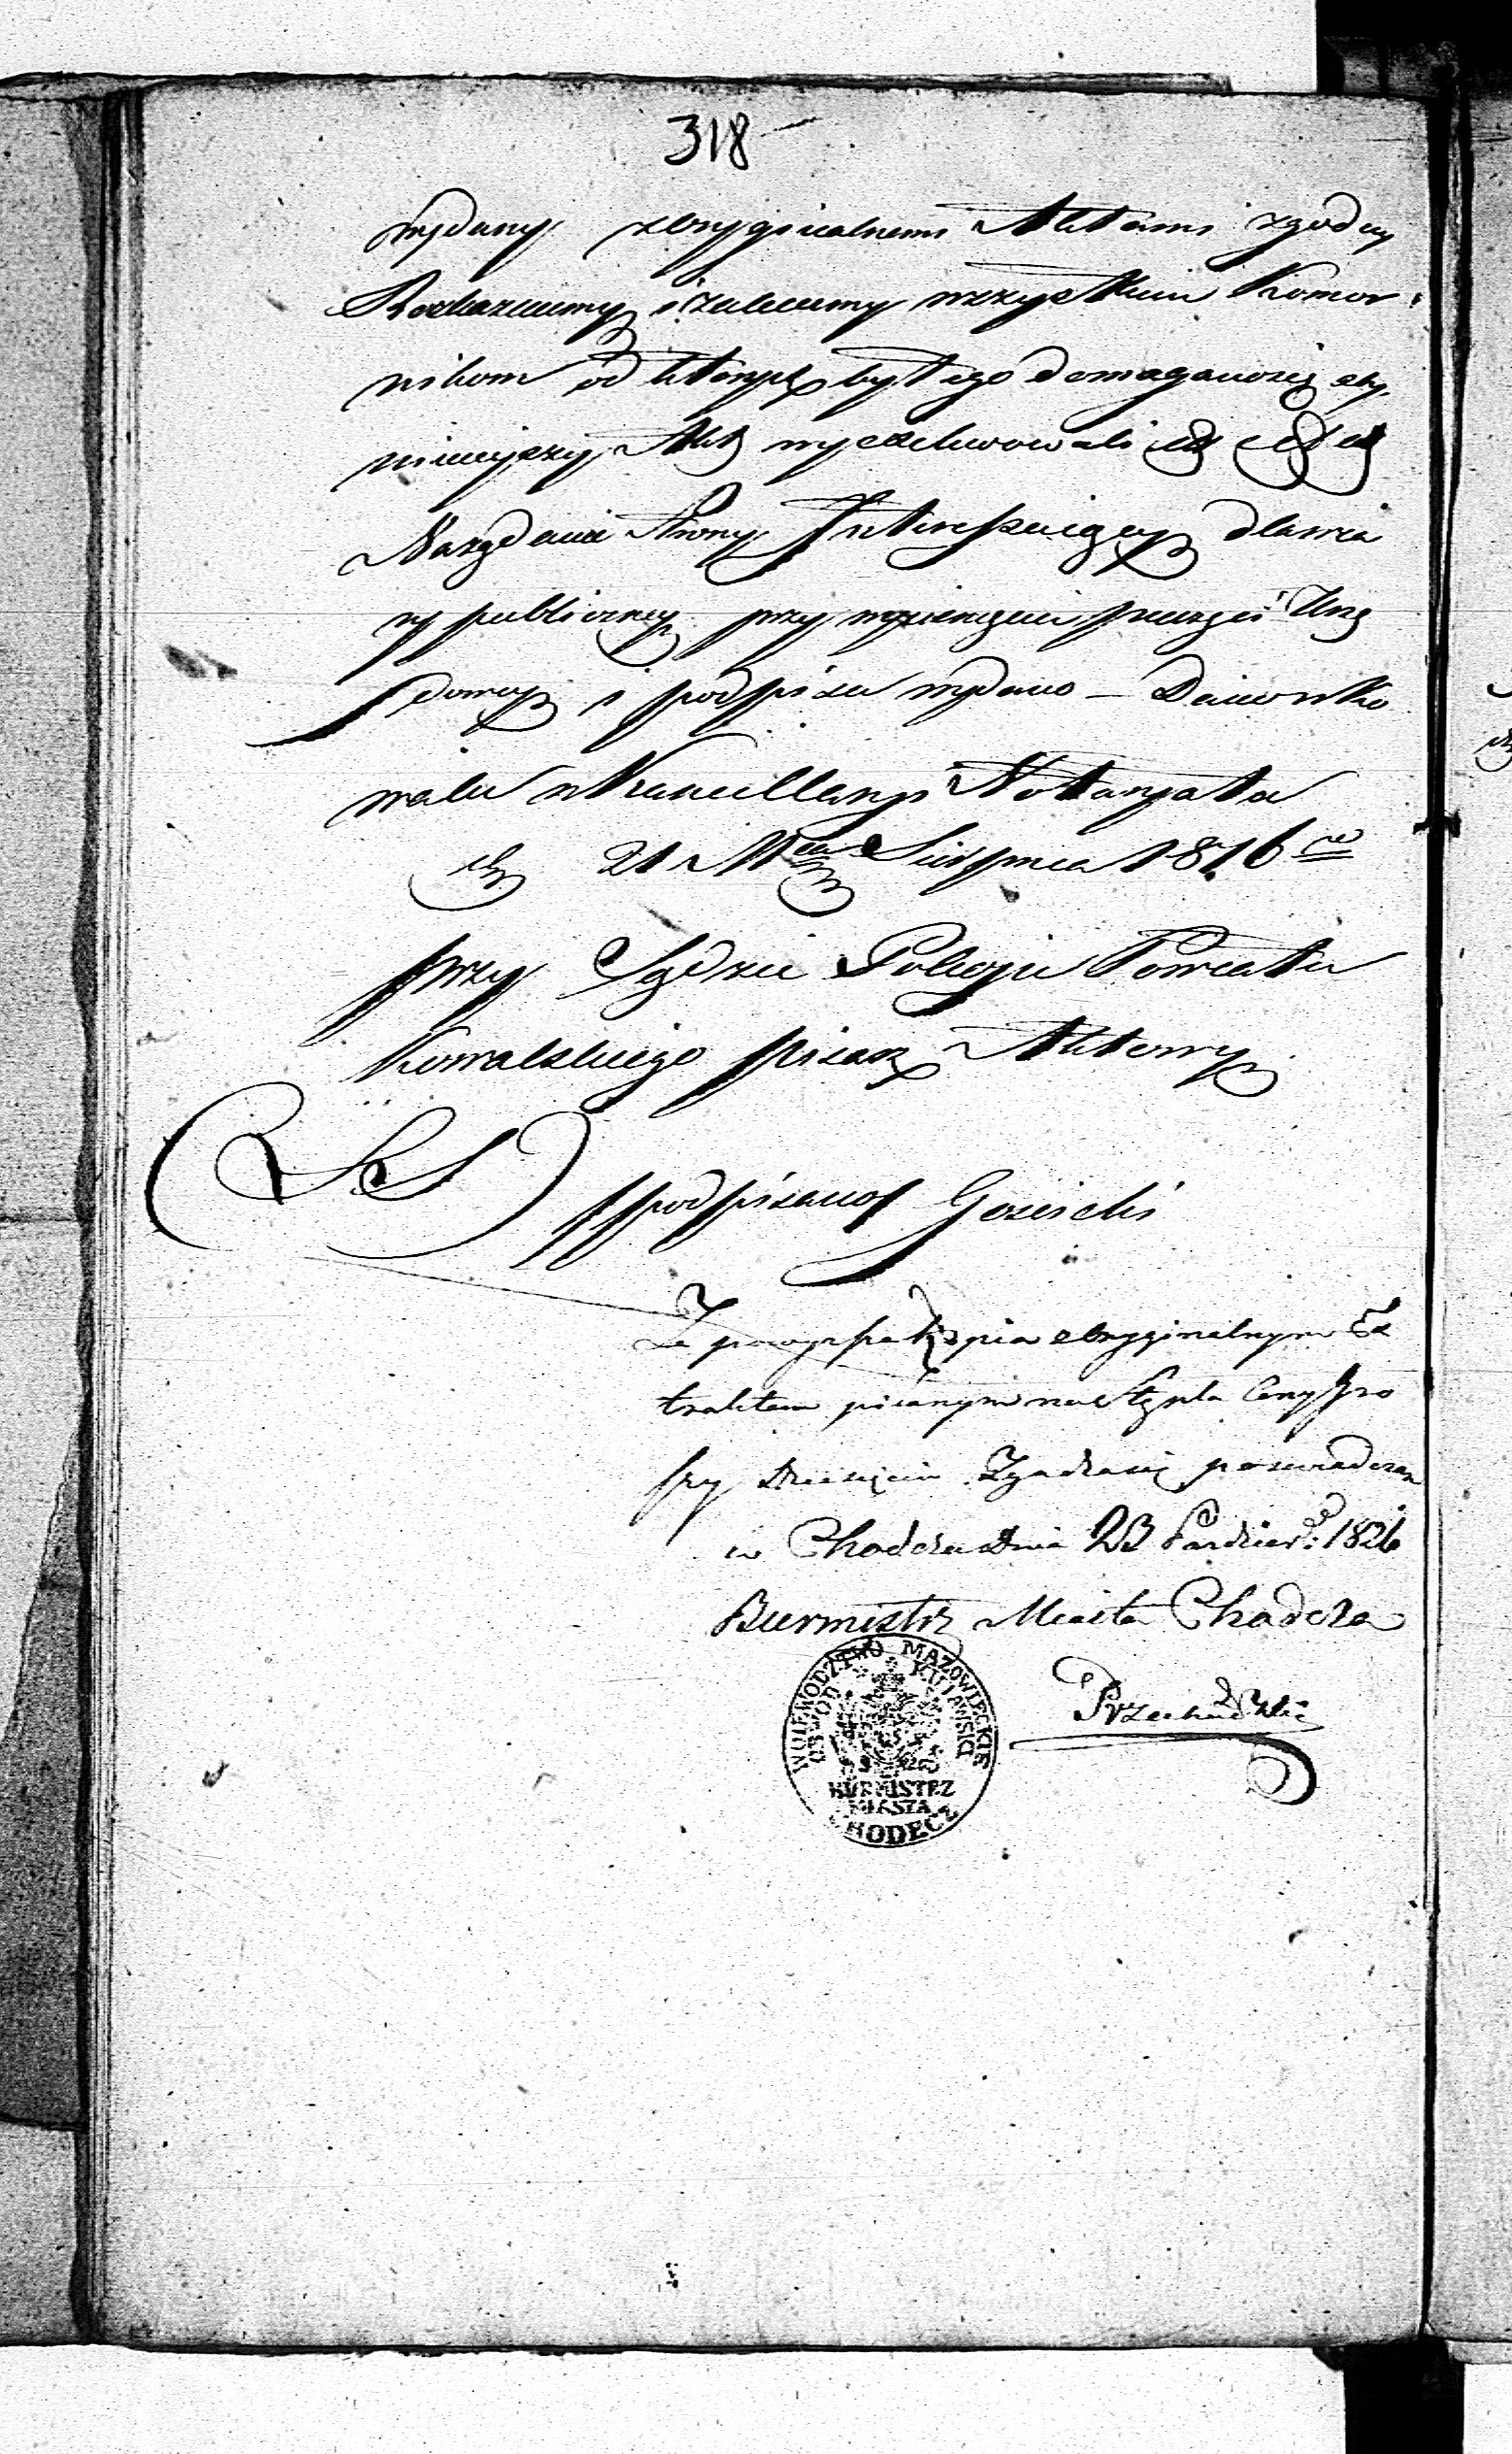 318
wydany z oryginalnemi Aktami zgodny
Rozkazuiemy i zalecemy wszystkim Komor-
nikom od których by tego domaganosię aby
ninieyszy Akt wyexekwowali et et et
Na żądanie strony Interessuiącey dla wia
ry publiczney przy wyciśnięciu pieczęci Urzę
dowey i podpisu wydano — Działo w Ko
walu w Kancellaryi Notaryata
dn 21 Mca Sierpnia 1816 ro
przy Sądzie Pokoju Powiatu
Kowalskiego pisarz Aktowy
(LS) /podpisano/ Gościcki
Że powyższa kopia z oryginalnym Ex
traktem pisanym na stęplu Ceny gro
szy dziesięciu Zgadzasię poswiadczam
w Chodczu dnia 23 Pazdzier: 1826
Burmistrz Miasta Chodcza
WOIEWODZTWO MAZOWIECKIE
OBWOD KUIAWSKI
BURMISTRZ
MIASTA
CHODECZ